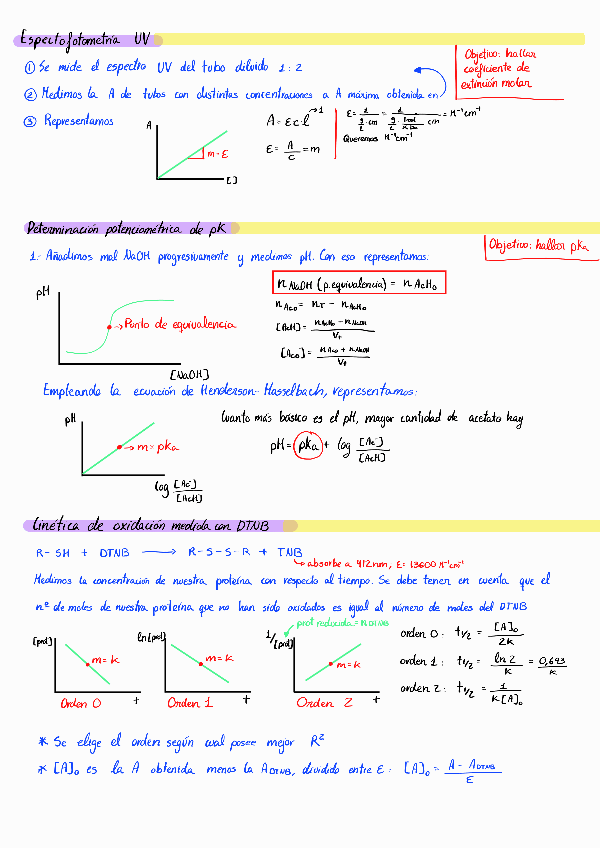 Espectofotometría UV
Objetivo: hallar
coeficiente de
extinción molar
① Se mide el espectro UV del tubo diluido 1:2
② Medimos la A de tubos con distintas concentraciones a A máxima obtenida en
③ Representamos
A
m = ε
[ ]
A = ε c l → 1
ε = A/c = m
ε = 1/(g/L · cm) = 1/(g/L · mol/kDa cm) = M⁻¹ cm⁻¹
Queremos M⁻¹ cm⁻¹
Determinación potenciométrica de pK
Objetivo: hallar pKa
1.- Añadimos mol NaOH progresivamente y medimos pH. Con eso representamos:
pH
→ Punto de equivalencia
[NaOH]
n NaOH (p. equivalencia) = n AcH₀
n Ac₀ = nT - n AcH₀
[AcH] = (n AcH₀ - n NaOH)/VT
[Ac₀] = (n Ac₀ + n NaOH)/VT
Empleando la ecuación de Henderson-Hasselbach, representamos:
pH
→ m = pKa
log [Ac⁻]/[AcH]
Cuanto más básico es el pH, mayor cantidad de acetato hay
pH = pKa + log [Ac⁻]/[AcH]
Cinética de oxidación medida con DTNB
R-SH + DTNB → R-S-S-R + TNB
→ absorbe a 412nm, ε = 13600 M⁻¹cm⁻¹
Medimos la concentración de nuestra proteína con respecto al tiempo. Se debe tener en cuenta que el
nº de moles de nuestra proteína que no han sido oxidados es igual al número de moles del DTNB
prot reducida = n DTNB
[prot]
m = k
Orden 0
t
ln [prot]
m = k
Orden 1
t
1/[prot]
m = k
Orden 2
t
orden 0: t1/2 = [A]₀/2k
orden 1: t1/2 = ln 2/k = 0,693/k
orden 2: t1/2 = 1/k[A]₀
* Se elige el orden según cual posee mejor R²
* [A]₀ es la A obtenida menos la A DTNB, dividido entre ε: [A]₀ = (A - A DTNB)/ε